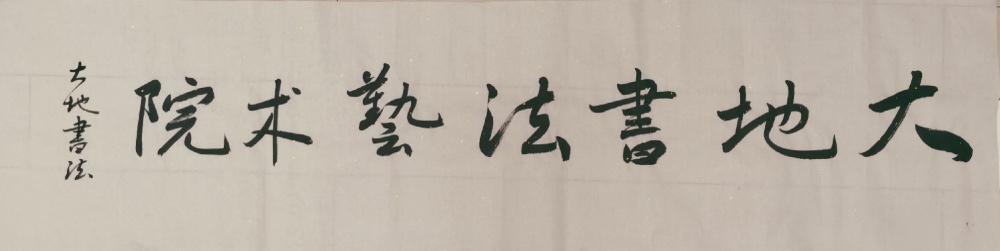 大地書法藝术院
大地書法